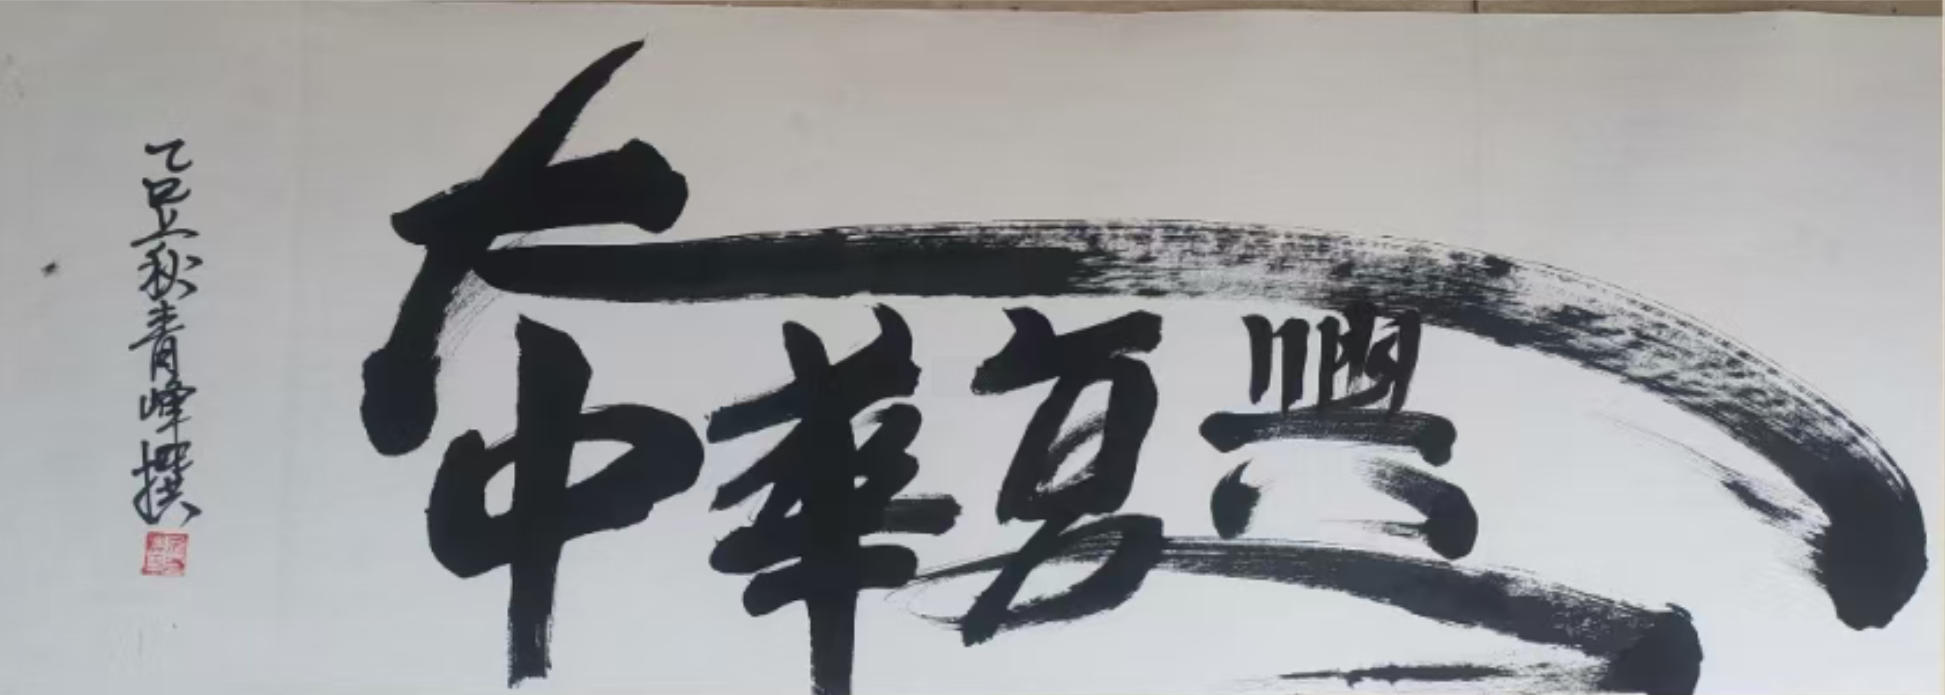 大
中華复興
乙巳上秋青峰撰